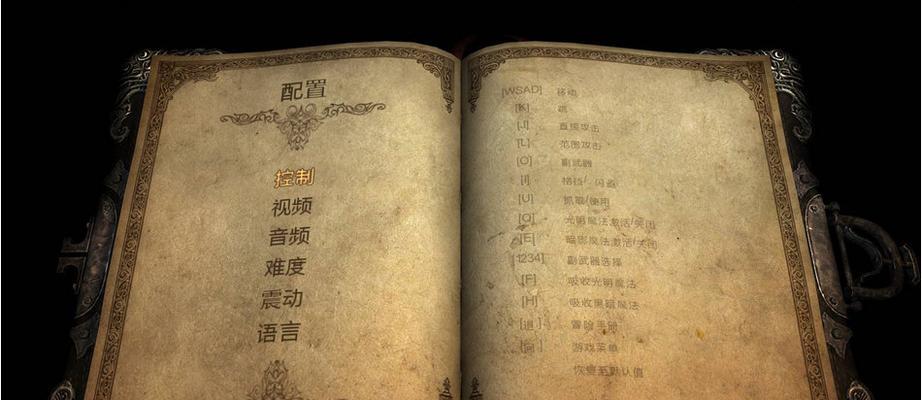 配置
控制
视频
音频
难度
震动
语言
[WSAD] 移动
[K] 跳
[J] 直接攻击
[L] 范围攻击
[O] 副武器
[I] 格挡/闪避
[U] 抓取/使用
[Q] 光明魔法激活/关闭
[E] 暗影魔法激活/关闭
[1234] 副武器选择
[F] 吸收光明魔法
[H] 吸收黑暗魔法
冒险手册
游戏菜单
恢复至默认值